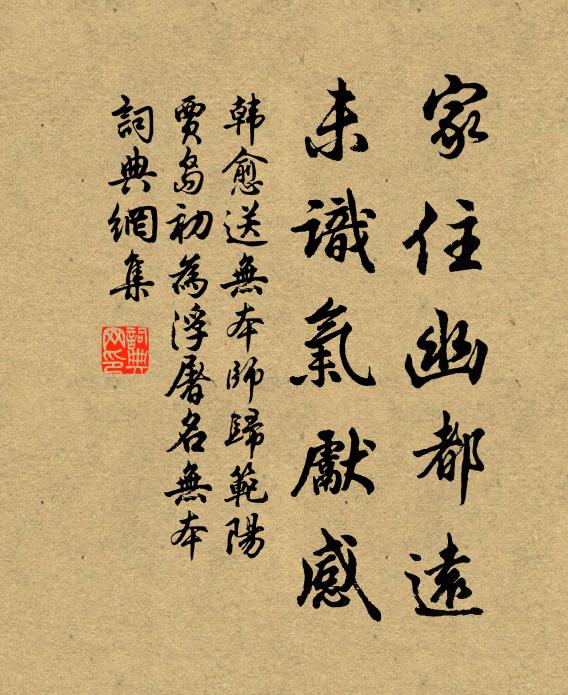 家住幽都遠
未識氣獻感
韩愈送無本師歸範陽
賈島初為浮屠名無本
詞典網集
詞典网印